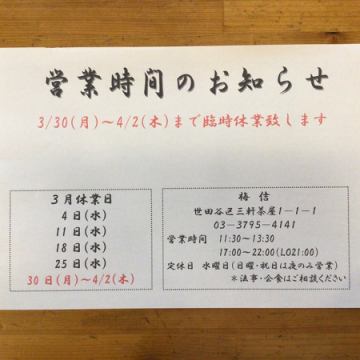 営業時間のお知らせ
3/30(月)～4/2(木)まで臨時休業致します
3月休業日
4日(水)
11日(水)
18日(水)
25日(水)
30日(月)～4/2(木)
梅信
世田谷区三軒茶屋1－1－1
03－3795－4141
営業時間 11:30～13:30
17:00～22:00(LO21:00)
定休日 水曜日(日曜・祝日は夜のみ営業)
＊法事・会食はご相談ください